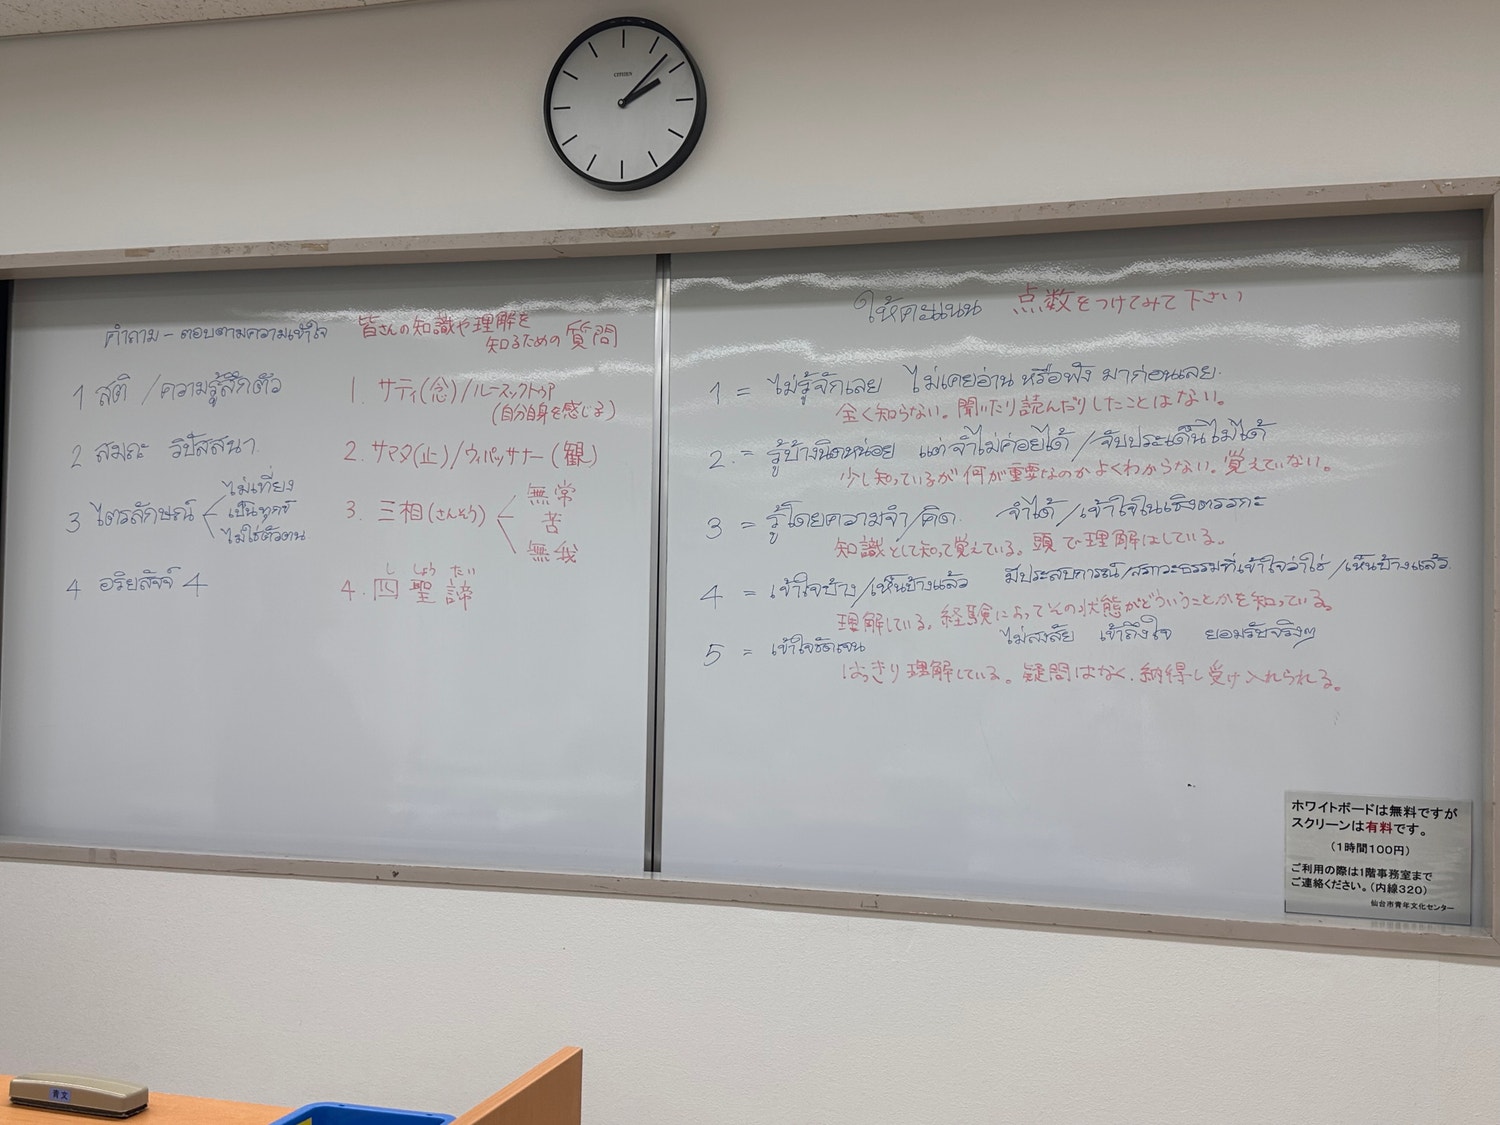 CITIZEN
คำถาม - ตอบตามความเข้าใจ
皆さんの知識や理解を
知るための質問
1 สติ / ความรู้สึกตัว
1. サティ(念)/ルースックトゥア
(自分自身を感じる)
2 สมถะ วิปัสสนา
2. サマタ(止)/ウィパッサナー(観)
3 ไตรลักษณ์
ไม่เที่ยง
เป็นทุกข์
ไม่ใช่ตัวตน
3. 三相(さんそう)
無常
苦
無我
4 อริยสัจจ์ 4
し しょう たい
4. 四聖諦
ให้คะแนน 点数をつけてみて下さい
1 = ไม่รู้จักเลย ไม่เคยอ่าน หรือฟัง มาก่อนเลย.
全く知らない。聞いたり読んだりしたことはない。
2. = รู้บ้างนิดหน่อย แต่จำไม่ค่อยได้ / จับประเด็นไม่ได้
少し知っているが何が重要なのかよくわからない。覚えていない。
3 = รู้โดยความจำ/คิด. จำได้ / เข้าใจในเชิงตรรกะ
知識として知って覚えている。頭で理解はしている。
4 = เข้าใจบ้าง/เห็นบ้างแล้ว มีประสบการณ์/สภาวะธรรมที่เข้าใจว่าใช่ / เห็นบ้างแล้ว.
理解している。経験によってその状態がどういうことかを知っている。
5 = เข้าใจชัดเจน ไม่สงสัย เข้าถึงใจ ยอมรับจริงๆ
はっきり理解している。疑問はなく、納得し受け入れられる。
ホワイトボードは無料ですが
スクリーンは有料です。
(1時間100円)
ご利用の際は1階事務室まで
ご連絡ください。(内線320)
仙台市青年文化センター
青文